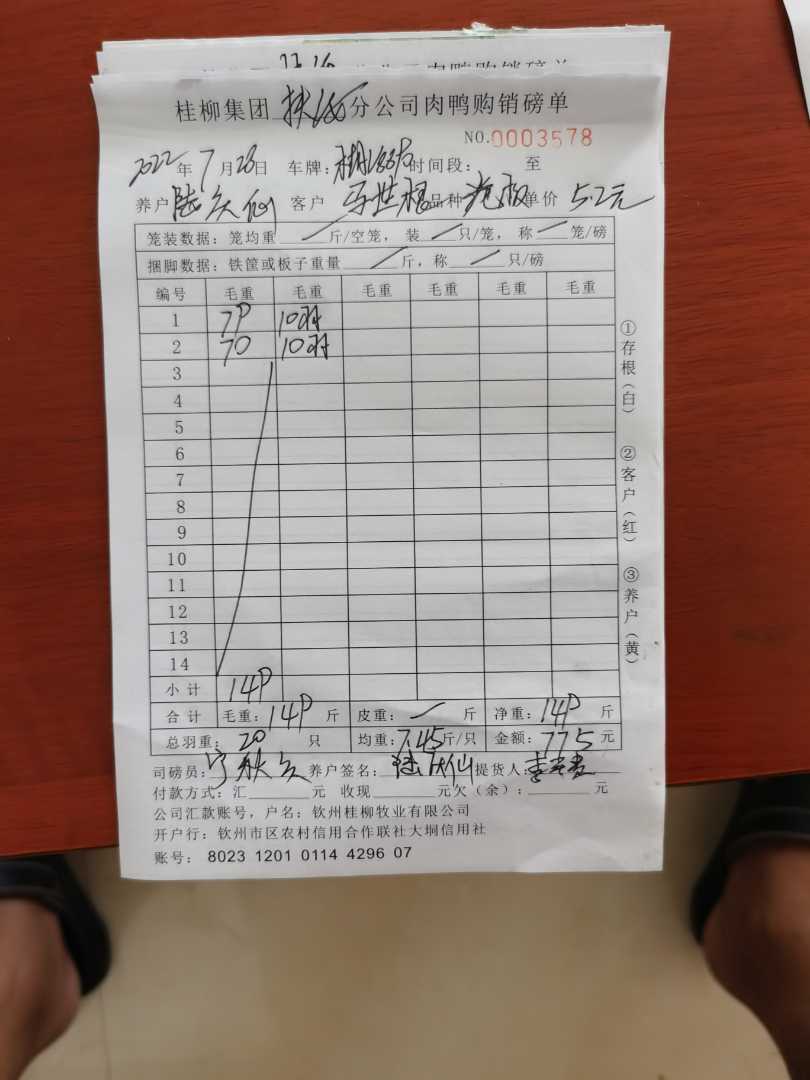 桂柳集团 扶绥 分公司肉鸭购销磅单
NO.0003578
2022年7月28日 车牌: 时间段: 至
养户 陆庆仙 客户 品种 单价 5.2元
笼装数据: 笼均重 / 斤/空笼, 装 / 只/笼, 称 / 笼/磅
捆脚数据: 铁筐或板子重量 / 斤, 称 / 只/磅
编号 毛重 毛重 毛重 毛重 毛重 毛重
1 79 10羽
2 70 10羽
3
4
5
6
7
8
9
10
11
12
13
14
小计 149
合计 毛重: 149 斤 皮重: / 斤 净重: 149 斤
总羽重: 20 只 均重: 7.45 斤/只 金额: 775 元
司磅员: 养户签名: 陆庆仙 提货人:
付款方式: 汇 元 收现 元欠(余): 元
公司汇款账号, 户名: 钦州桂柳牧业有限公司
开户行: 钦州市区农村信用合作联社大垌信用社
账号: 8023 1201 0114 4296 07
①存根(白)
②客户(红)
③养户(黄)